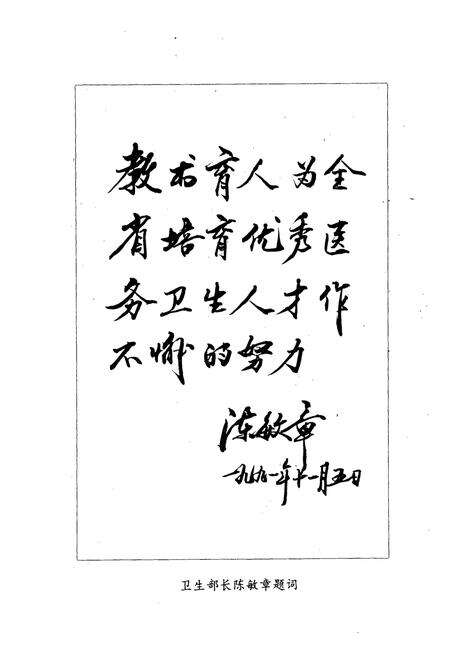 教术育人为全
省培育优秀医
务卫生人才作
不懈的努力
陈敏章
一九九一年十一月五日
卫生部长陈敏章题词